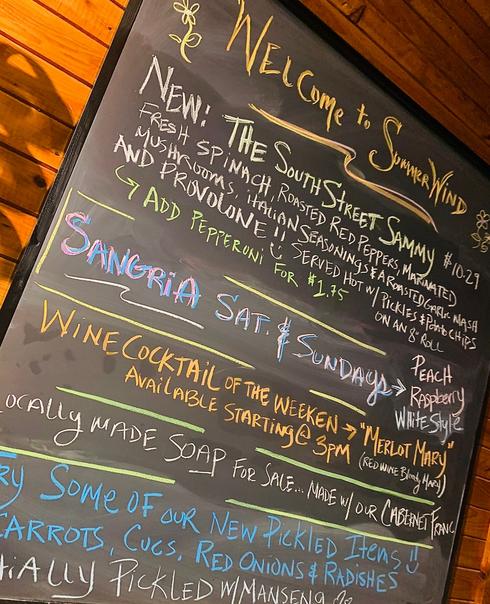 WELCOME to SUMMERWIND
NEW! THE SOUTH STREET SAMMY $10.29
FRESH SPINACH, ROASTED RED PEPPERS, MARINATED
MUSHROOMS, iTALIAN SEASONINGS & A ROASTED GARLIC MASH
AND PROVOLONE!! SERVED HOT W/ PICKLES & POTATO CHIPS
ON AN 8" ROLL
ADD PEPPERONI FOR $1.75
SANGRIA SAT. & SUNDAYS
PEACH
Raspberry
White Style
WINE COCKTAIL OF THE WEEKEN → "MERLOT MARY"
AVAILABLE STARTING @ 3PM (RED WINE Bloody Mary)
OCALLY MADE SOAP FOR SALE... MADE W/ OUR CABERNET FRANC
RY SOME OF OUR NEW PICKLED ITEMS!!
CARROTS, CUCS, RED ONIONS & RADISHES
iALLY PICKLED W/ MANSENG